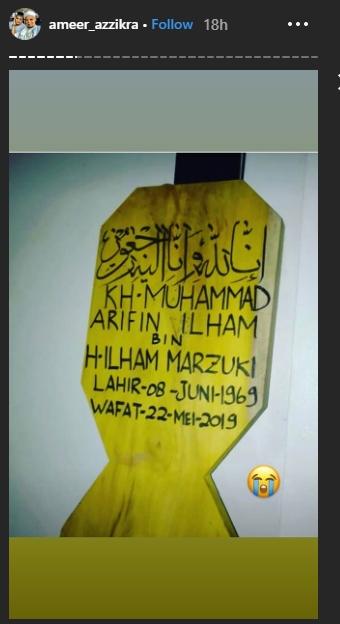 ameer_azzikra • Follow 18h
إنا لله وإنا إليه راجعون
KH. MUHAMMAD
ARIFIN ILHAM
BIN
H. ILHAM MARZUKI
LAHIR-08-JUNI-1969
WAFAT-22-MEI-2019